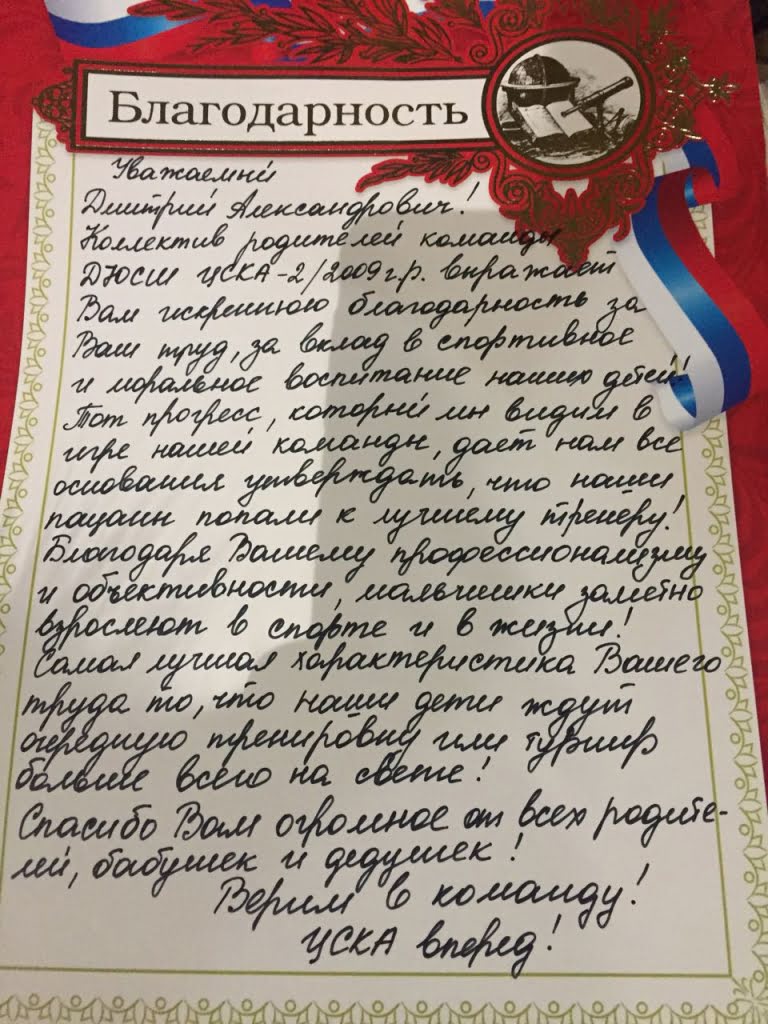 Благодарность
Уважаемый
Дмитрий Александрович!
Коллектив родителей команды
ДЮСШ ЦСКА-2/2009г.р. выражает
Вам искреннюю благодарность за
Ваш труд, за вклад в спортивное
и моральное воспитание наших детей!
Тот прогресс, который мы видим в
игре нашей команды, дает нам все
основания утверждать, что наши
пацаны попали к лучшему тренеру!
Благодаря Вашему профессионализму
и объективности, мальчишки заметно
взрослеют в спорте и в жизни!
Самая лучшая характеристика Вашего
труда то, что наши дети ждут
очередную тренировку или турнир
больше всего на свете!
Спасибо Вам огромное от всех родите-
лей, бабушек и дедушек!
Верим в команду!
ЦСКА вперед!